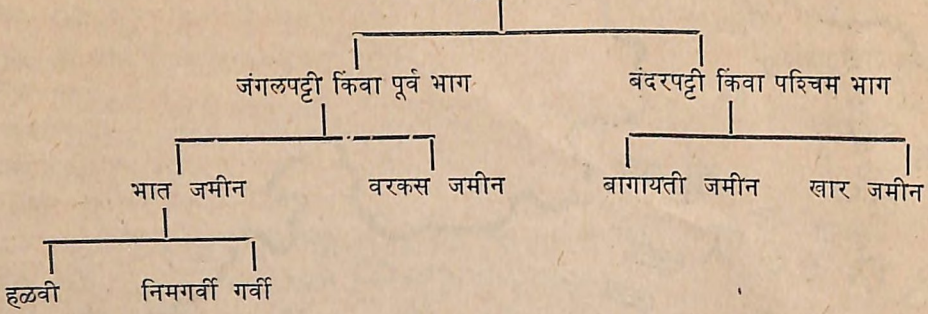 जंगलपट्टी किंवा पूर्व भाग बंदरपट्टी किंवा पश्चिम भाग
भात जमीन वरकस जमीन बागायती जमीन खार जमीन
हळवी निमगर्वी गर्वी